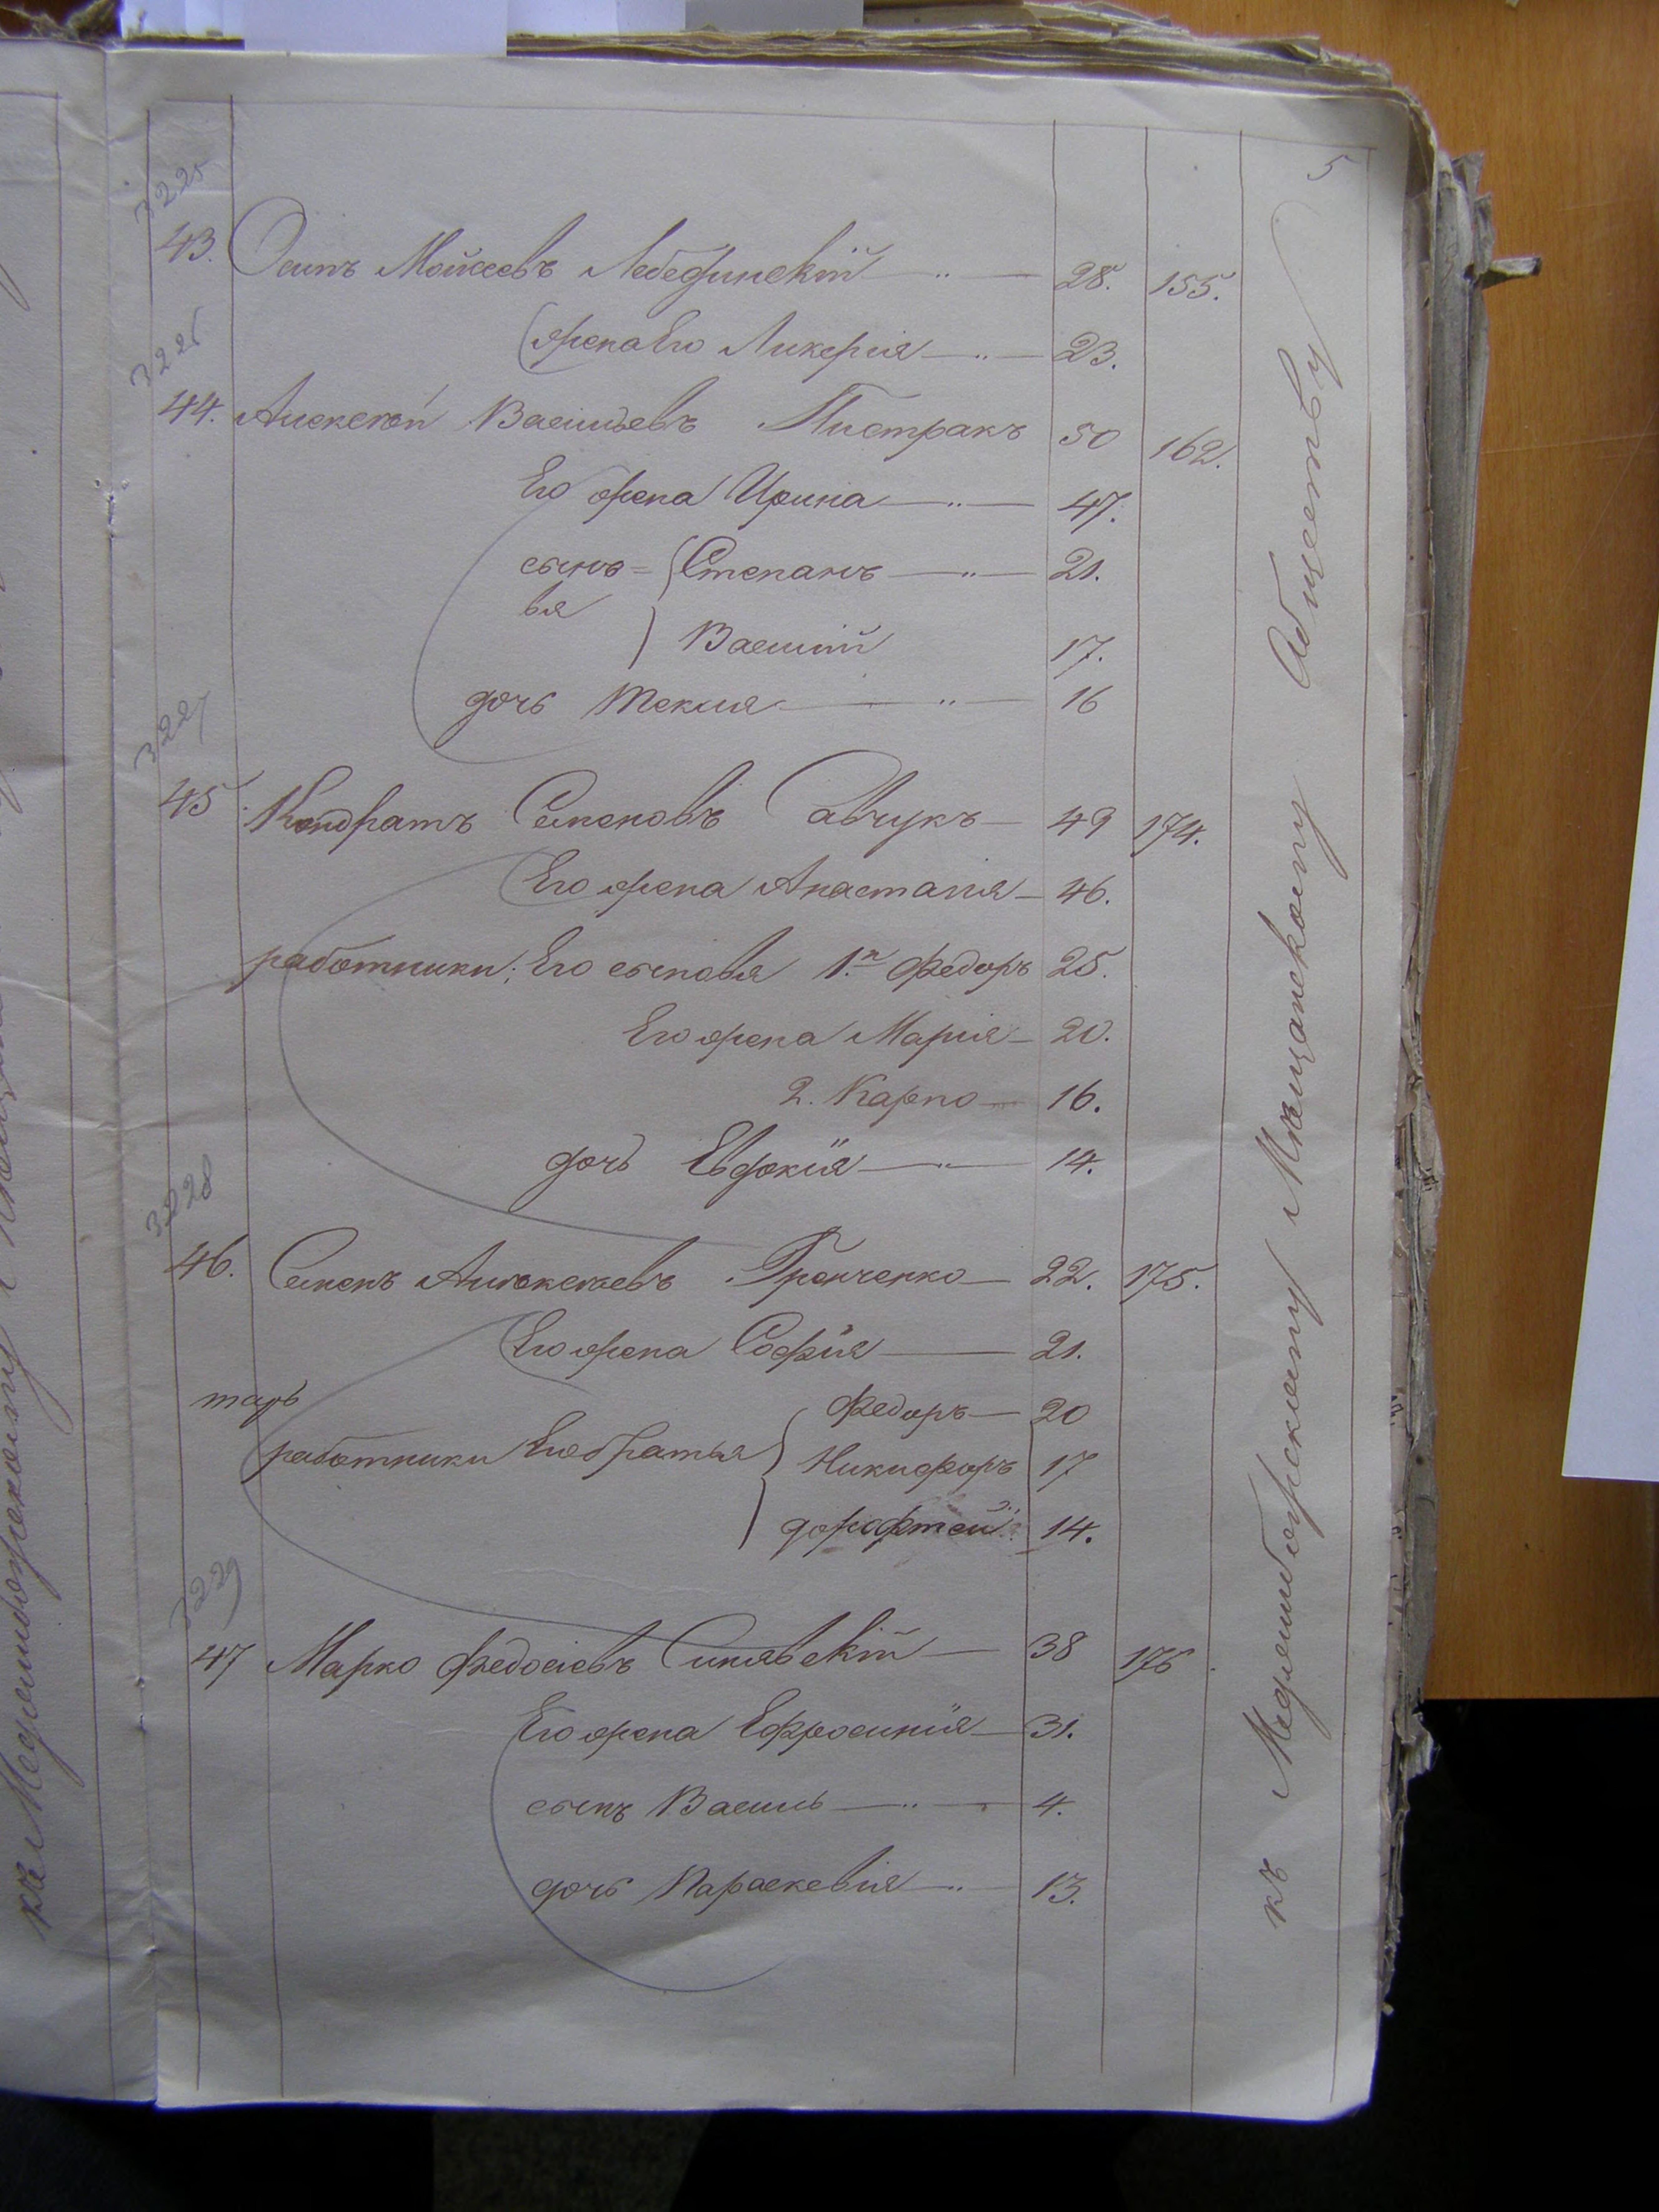 5
3225
43. Осипъ Мойсеевъ Лебединскій 28. 155.
жена Его Ликерія 23.
3226
44. Алексѣй Васильевъ Пистракъ 50 162.
Его жена Ирина 47.
сыно= Степанъ 21.
вья
Василій 17.
дочь Текля 16
3227
45 Кондратъ Семеновъ Савчукъ 49 174.
Его жена Анастасія 46.
работники; Его сыновья 1.й Федоръ 25.
Его жена Марія 20.
2. Карпо 16.
дочь Евдокія 14.
3228
46. Семенъ Алексѣевъ Гренченко 22. 175.
Его жена Софія 21.
Федоръ 20
работники Его братья Никифоръ 17
дорофтей 14.
3229
47 Марко Федосіевъ Синявскій 38 176
Его жена Ефросинія 31.
сынъ Василь 4.
дочь Параскевія 13.
къ Меджибожскому Мѣщанскому Обществу
къ Меджибожскому